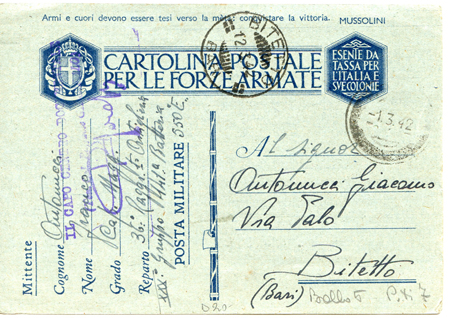 Armi e cuori devono essere tesi verso la mèta: conquistare la vittoria. MUSSOLINI
CARTOLINA POSTALE
PER LE FORZE ARMATE
ESENTE DA
TASSA PER
L'ITALIA E
SUE COLONIE
BITETTO
1.3.42
IL CAPO
Mittente
Cognome Antonucci
Nome Franco
Grado
Reparto 36°
Gruppo Batteria
POSTA MILITARE 550 E
Al Signor
Antonucci Giacomo
Via Palo
Bitetto
(Bari)
P.N. 7